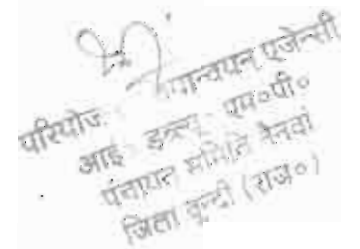 परियोज   न्वयन एजेन्सी
आई डब्ल्यू एम०पी०
पंचायत समिति नैनवां
जिला बून्दी (राज०)